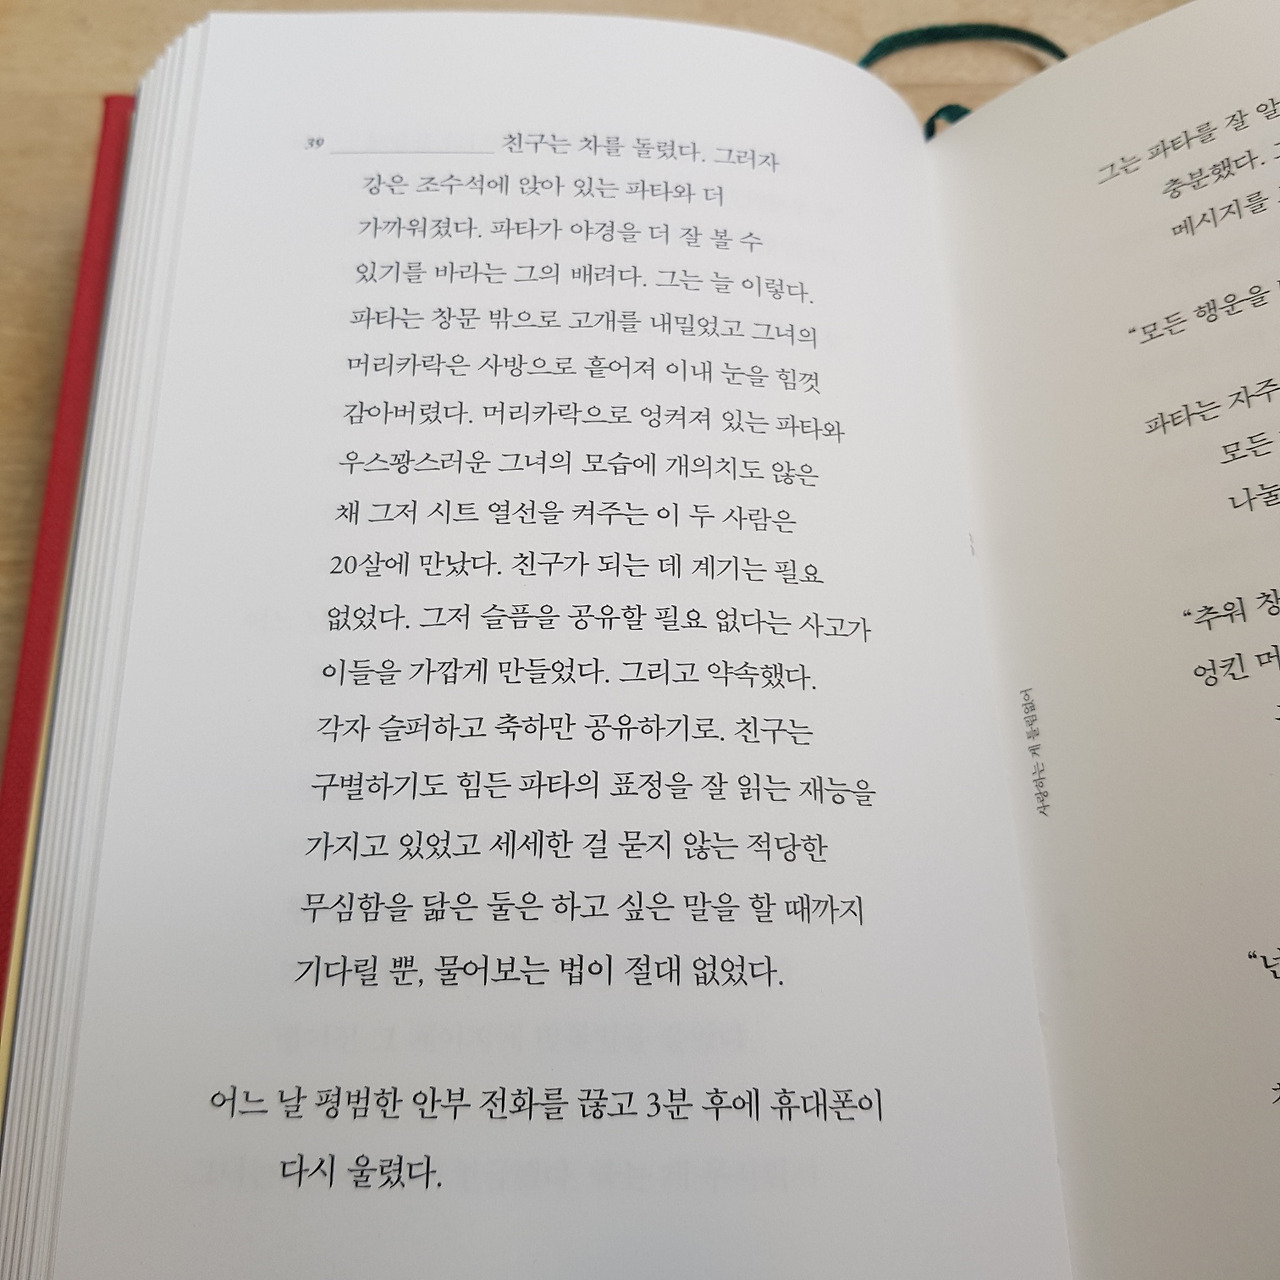 39 친구는 차를 돌렸다. 그러자
강은 조수석에 앉아 있는 파타와 더
가까워졌다. 파타가 야경을 더 잘 볼 수
있기를 바라는 그의 배려다. 그는 늘 이렇다.
파타는 창문 밖으로 고개를 내밀었고 그녀의
머리카락은 사방으로 흩어져 이내 눈을 힘껏
감아버렸다. 머리카락으로 엉켜져 있는 파타와
우스꽝스러운 그녀의 모습에 개의치도 않은
채 그저 시트 열선을 켜주는 이 두 사람은
20살에 만났다. 친구가 되는 데 계기는 필요
없었다. 그저 슬픔을 공유할 필요 없다는 사고가
이들을 가깝게 만들었다. 그리고 약속했다.
각자 슬퍼하고 축하만 공유하기로. 친구는
구별하기도 힘든 파타의 표정을 잘 읽는 재능을
가지고 있었고 세세한 걸 묻지 않는 적당한
무심함을 닮은 둘은 하고 싶은 말을 할 때까지
기다릴 뿐, 물어보는 법이 절대 없었다.
어느 날 평범한 안부 전화를 끊고 3분 후에 휴대폰이
다시 울렸다.
그는 파타를 잘 알
충분했다.
메시지를
“모든 행운을
파타는 자주
모든
나눌
“추워 창
엉킨 머
“넌